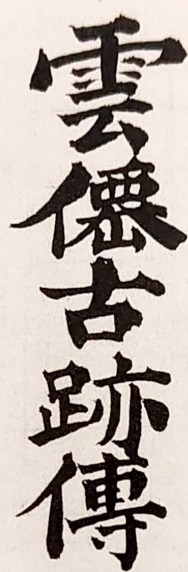 雲僊古跡傳